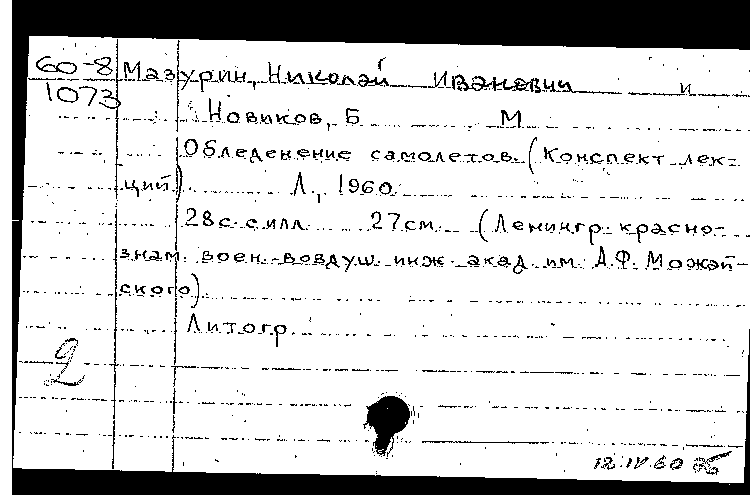 60-8 Мазурин, Николай Иванович и
1073 Новиков, Б М
Обледенение самолетов. (Конспект лек-
ций) Л., 1960
28с. с илл. 27см. (Ленингр. красно-
знам. воен.-воздуш. инж. акад. им. А.Ф. Можай-
ского).
Литогр.
2
12.IV.60